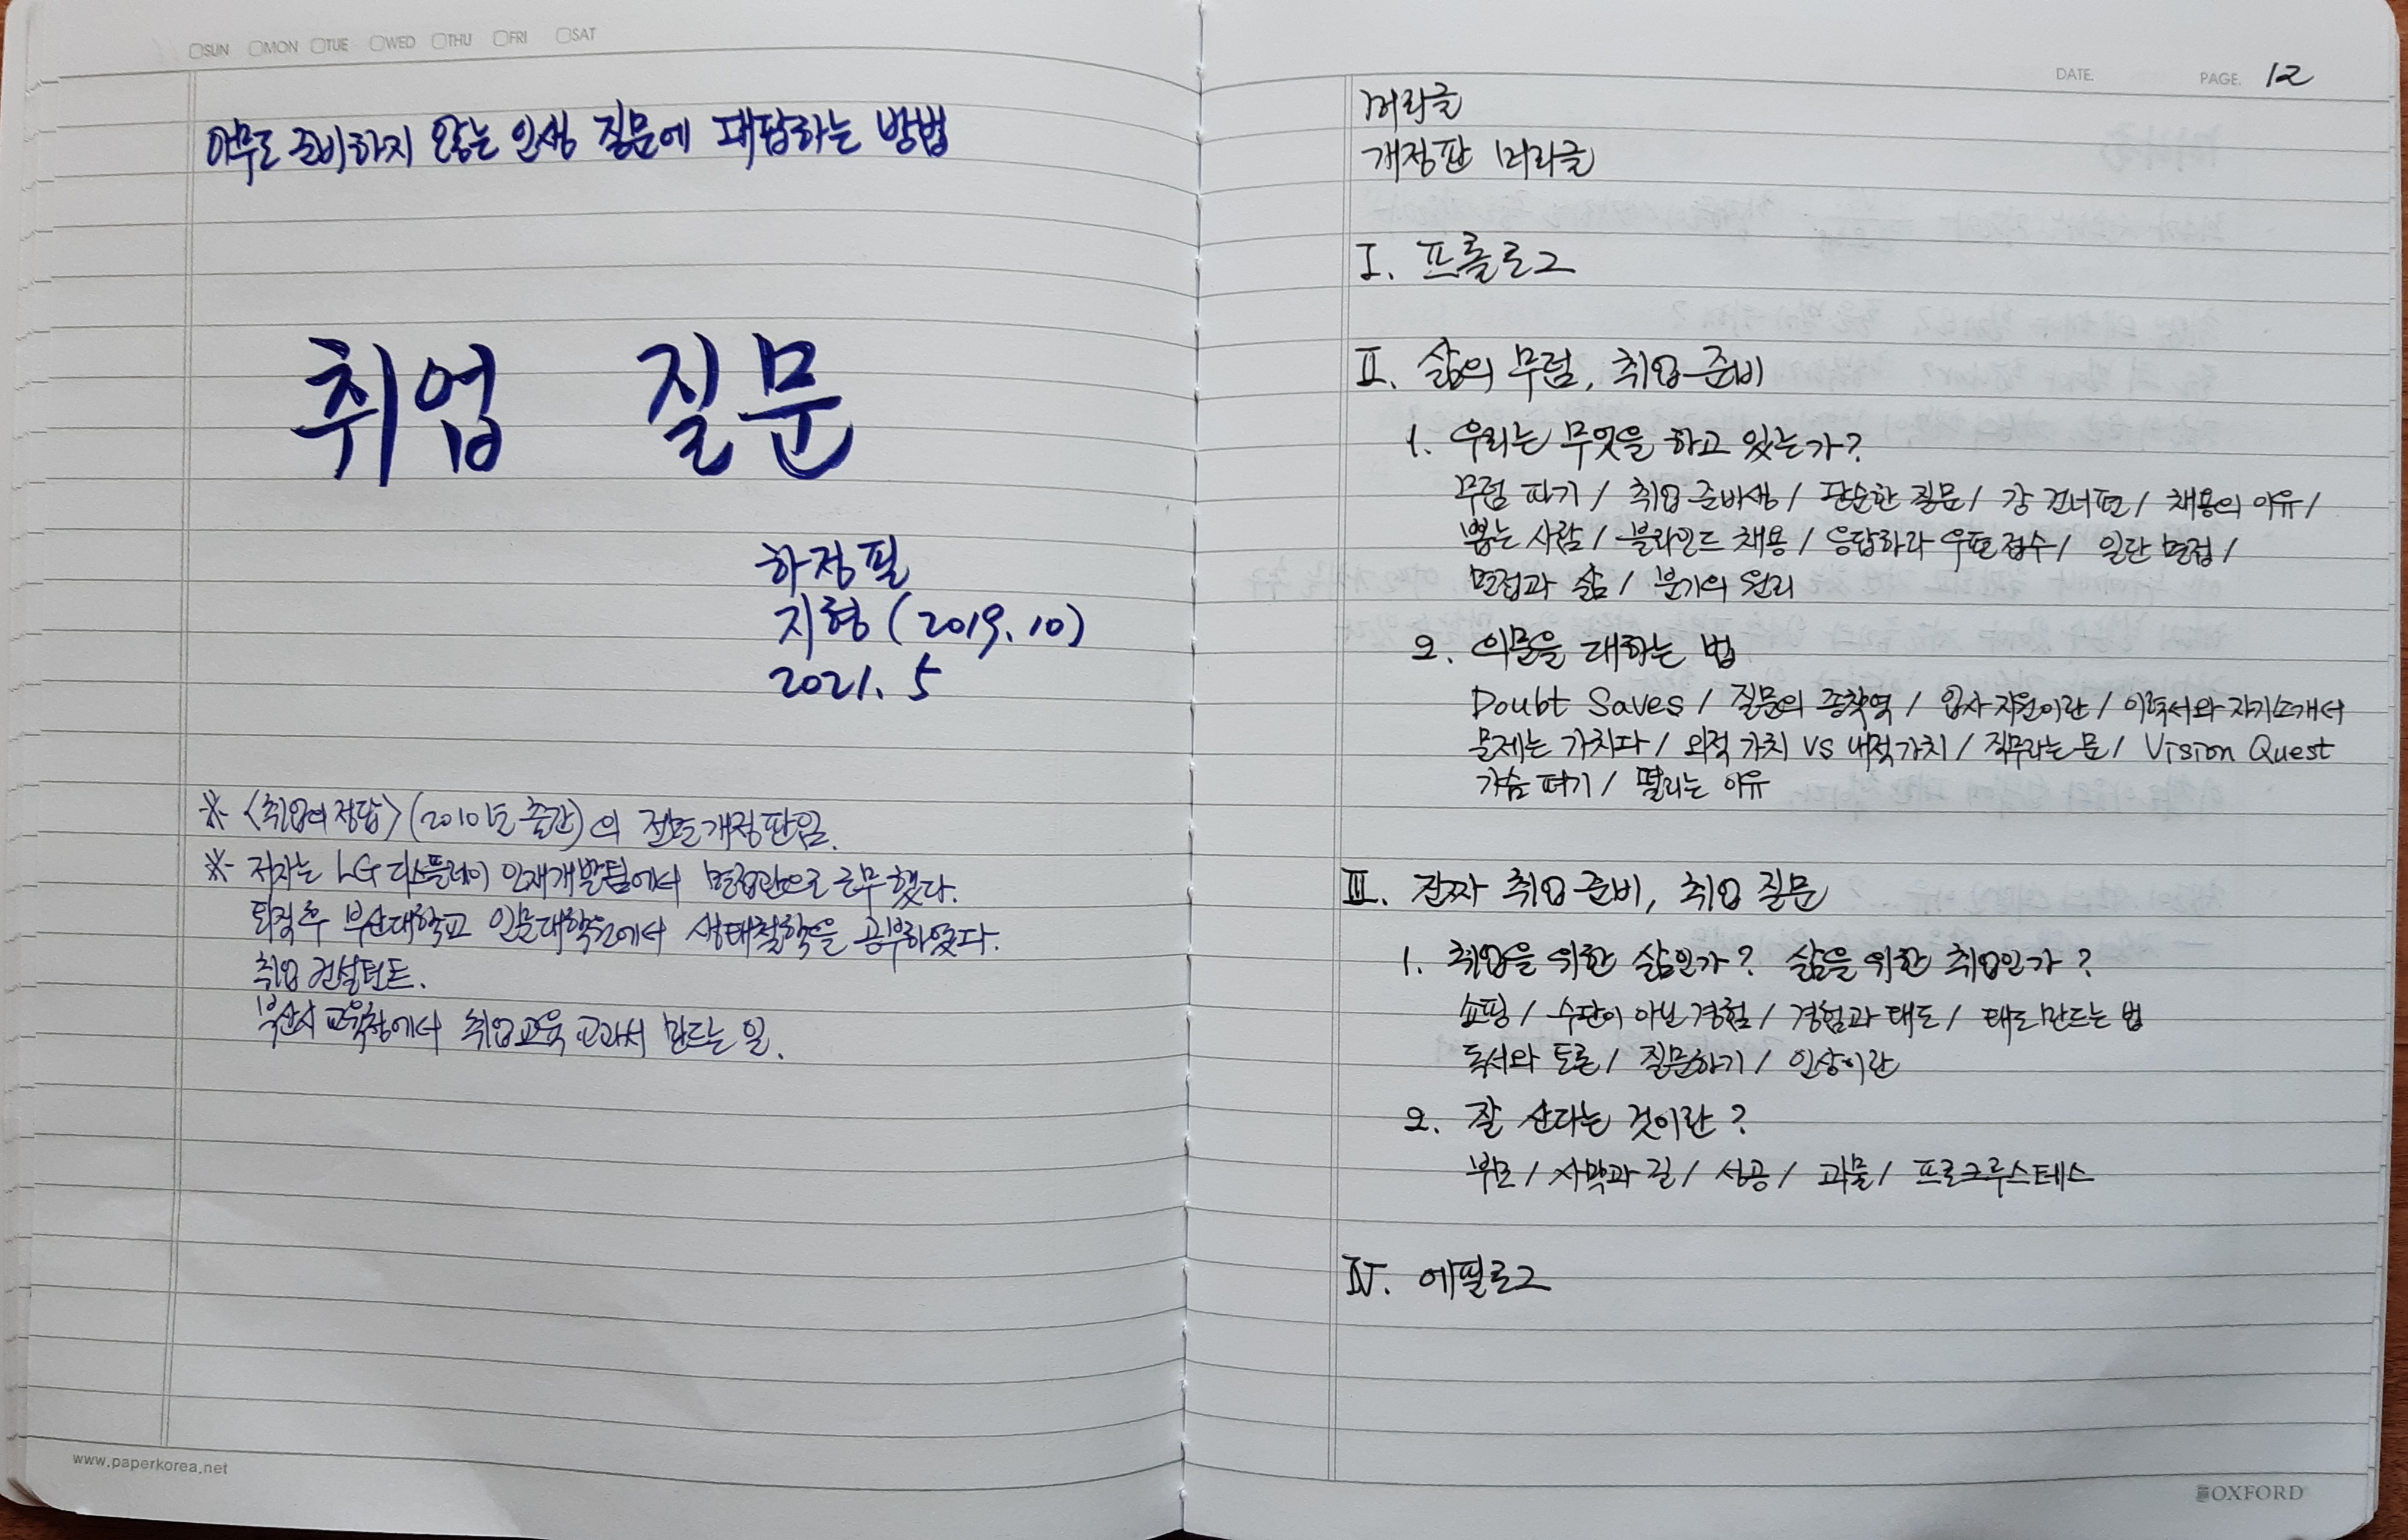 SUN MON TUE WED THU FRI SAT
아무도 준비하지 않는 인생 질문에 대답하는 방법
취업 질문
하정필
지형 (2019. 10)
2021. 5
※ <취업의 정답> (2010년 출간)의 전면개정판임.
※ 저자는 LG디스플레이 인재개발팀에서 면접관으로 근무했다.
퇴직 후 부산대학교 인문대학원에서 생태철학을 공부하였다.
취업 컨설턴트.
부산시 교육청에서 취업교육 교과서 만드는 일.
www.paperkorea.net
DATE. PAGE. 12
머리글
개정판 머리글
I. 프롤로그
II. 삶의 무덤, 취업 준비
1. 우리는 무엇을 하고 있는가?
무덤 파기 / 취업 준비생 / 단순한 질문 / 강 건너편 / 채용의 이유 /
뽑는 사람 / 블라인드 채용 / 응답하라 우편 접수 / 일단 면접 /
면접과 삶 / 분기의 원리
2. 의문을 대하는 법
Doubt Saves / 질문의 종착역 / 입사 지원이란 / 이력서와 자기소개서
문제는 가치다 / 외적 가치 vs 내적 가치 / 직무라는 문 / Vision Quest
가슴 펴기 / 떨리는 이유
III. 진짜 취업 준비, 취업 질문
1. 취업을 위한 삶인가? 삶을 위한 취업인가?
쇼핑 / 수단이 아닌 경험 / 경험과 태도 / 태도 만드는 법
독서와 토론 / 질문하기 / 인상이란
2. 잘 산다는 것이란?
부모 / 사막과 길 / 성공 / 괴물 / 프로크루스테스
IV. 에필로그
OXFORD